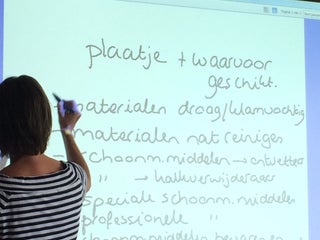 plaatje + waarvoor
geschikt.
materialen droog/klamvochtig
materialen nat reinigen
schoonm. middelen → ontvetten
" → kalkverwijderaars
speciale schoonm. middelen
professionele "